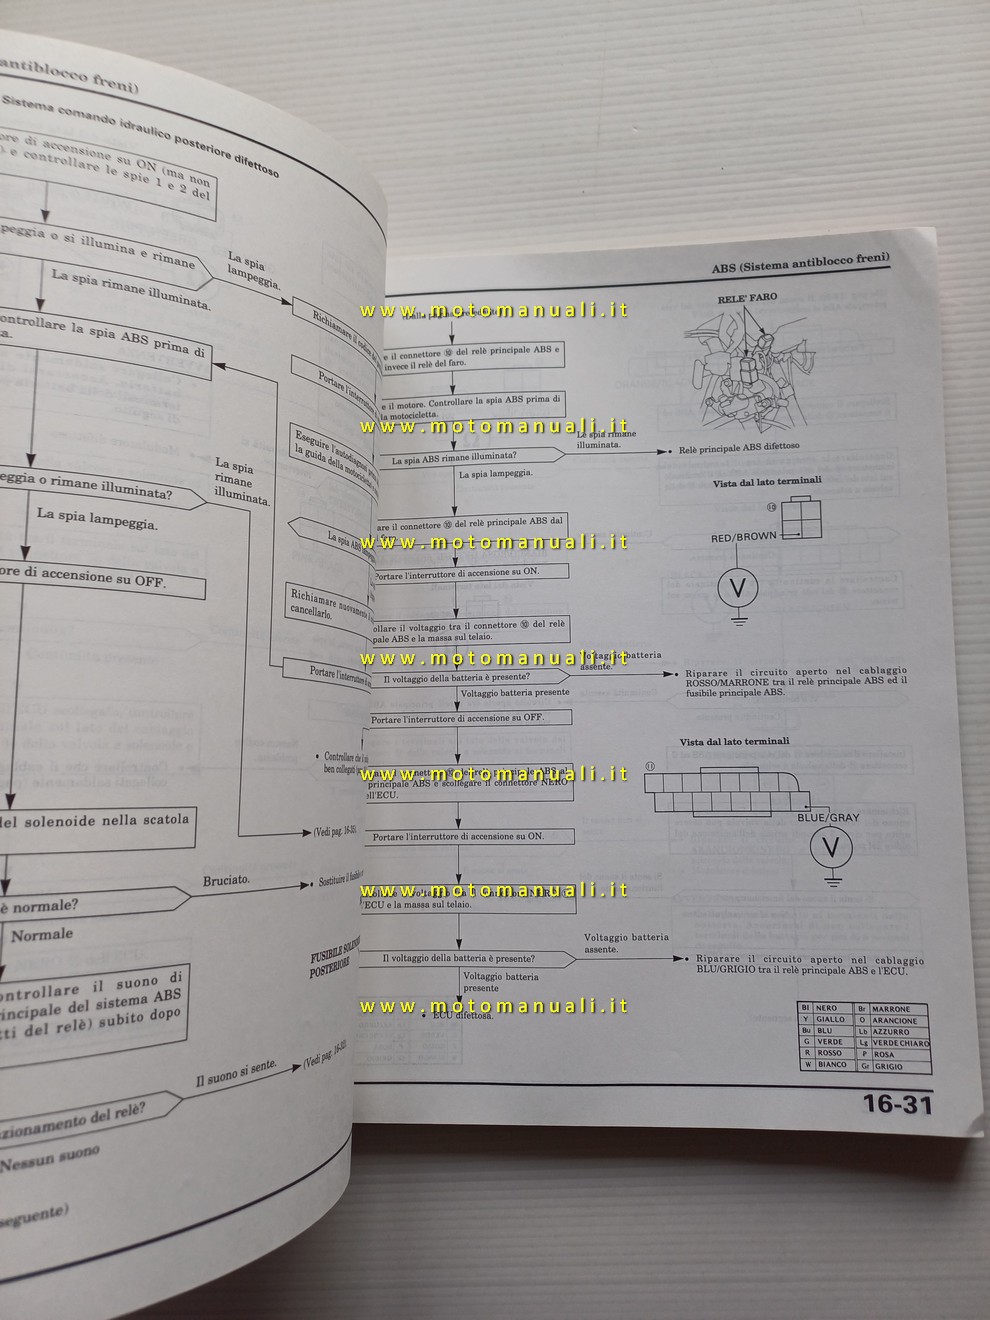 antiblocco freni)
Sistema comando idraulico posteriore difettoso
ore di accensione su ON (ma non
e controllare le spie 1 e 2 del
peggia o si illumina e rimane
La spia
lampeggia.
La spia rimane illuminata.
ontrollare la spia ABS prima di
ta.
La spia
rimane
illuminata.
eggia o rimane illuminata?
La spia lampeggia.
ore di accensione su OFF.
del solenoide nella scatola
è normale?
Bruciato.
Normale
ontrollare il suono di
incipale del sistema ABS
tti del relè) subito dopo
Il suono si sente.
(Vedi pag. 16-32)
zionamento del relè?
Nessun suono
seguente)
Richiamare il codice
Portare l'interruttore
Eseguire l'autodiagnosi
la guida della motocicletta
La spia ABS
Richiamare nuovamente
cancellarlo.
Portare l'interruttore
• Controllare che
ben collegati
(Vedi pag. 16-30)
• Sostituire il fusibile
FUSIBILE
POSTERIORI
ABS (Sistema antiblocco freni)
RELE' FARO
www.motomanuali.it
e il connettore ⑩ del relè principale ABS e
invece il relè del faro.
e il motore. Controllare la spia ABS prima di
la motocicletta.
www.motomanuali.it
Le spia rimane
illuminata.
La spia ABS rimane illuminata?
• Relè principale ABS difettoso
La spia lampeggia.
Vista dal lato terminali
⑩
RED/BROWN
V
are il connettore ⑩ del relè principale ABS dal
www.motomanuali.it
Portare l'interruttore di accensione su ON.
ollare il voltaggio tra il connettore ⑩ del relè
pale ABS e la massa sul telaio.
www.motomanuali.it
Voltaggio batteria
assente.
Il voltaggio della batteria è presente?
• Riparare il circuito aperto nel cablaggio
ROSSO/MARRONE tra il relè principale ABS ed il
fusibile principale ABS.
Voltaggio batteria presente
Portare l'interruttore di accensione su OFF.
Vista dal lato terminali
⑪
BLUE/GRAY
V
www.motomanuali.it
principale ABS e scollegare il connettore NERO
ell'ECU.
Portare l'interruttore di accensione su ON.
www.motomanuali.it
l'ECU e la massa sul telaio.
Voltaggio batteria
assente.
Il voltaggio della batteria è presente?
• Riparare il circuito aperto nel cablaggio
BLU/GRIGIO tra il relè principale ABS e l'ECU.
Voltaggio batteria
presente
www.motomanuali.it
• ECU difettosa.
Bl NERO Br MARRONE
Y GIALLO O ARANCIONE
Bu BLU Lb AZZURRO
G VERDE Lg VERDE CHIARO
R ROSSO P ROSA
W BIANCO Gr GRIGIO
16-31